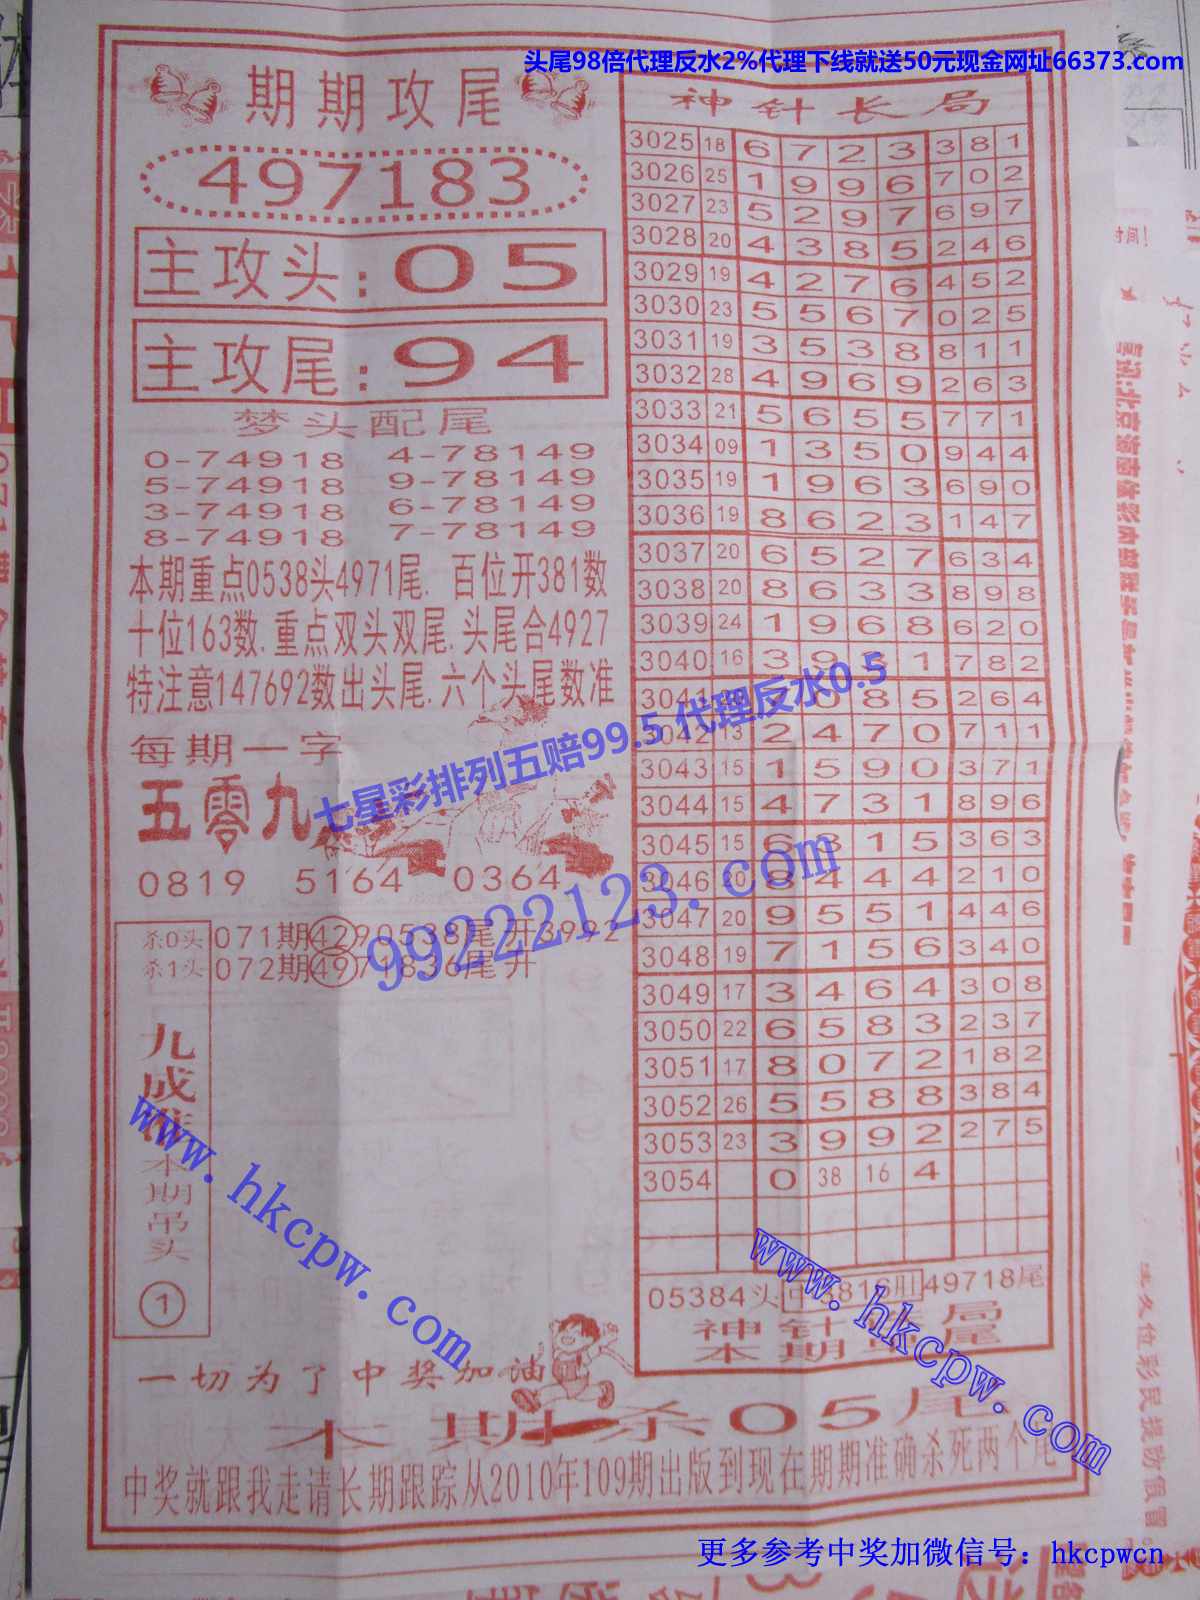 头尾98倍代理反水2%代理下线就送50元现金网址66373.com
期期攻尾
497183
主攻头:05
主攻尾:94
梦头配尾
0-74918 4-78149
5-74918 9-78149
3-74918 6-78149
8-74918 7-78149
本期重点0538头4971尾. 百位开381数
十位163数.重点双头双尾.头尾合4927
特注意147692数出头尾.六个头尾数准
每期一字
五零九
0819 5164 0364
杀0头 071期4290538尾开3992
杀1头 072期4971836尾开
九成准
本期吊头
1
一切为了中奖加油
神针长局
3025 18 6 7 2 3 3 8 1
3026 25 1 9 9 6 7 0 2
3027 23 5 2 9 7 6 9 7
3028 20 4 3 8 5 2 4 6
3029 19 4 2 7 6 4 5 2
3030 23 5 5 6 7 0 2 5
3031 19 3 5 3 8 8 1 1
3032 28 4 9 6 9 2 6 3
3033 21 5 6 5 5 7 7 1
3034 09 1 3 5 0 9 4 4
3035 19 1 9 6 3 6 9 0
3036 19 8 6 2 3 1 4 7
3037 20 6 5 2 7 6 3 4
3038 20 8 6 3 3 8 9 8
3039 24 1 9 6 8 6 2 0
3040 16 3 9 3 1 7 8 2
3041 20 7 0 8 5 2 6 4
3042 13 2 4 7 0 7 1 1
3043 15 1 5 9 0 3 7 1
3044 15 4 7 3 1 8 9 6
3045 15 6 3 1 5 3 6 3
3046 20 8 4 4 4 2 1 0
3047 20 9 5 5 1 4 4 6
3048 19 7 1 5 6 3 4 0
3049 17 3 4 6 4 3 0 8
3050 22 6 5 8 3 2 3 7
3051 17 8 0 7 2 1 8 2
3052 26 5 5 8 8 3 8 4
3053 23 3 9 9 2 2 7 5
3054 0 38 16 4
05384头中3816肚49718尾
神针 局
本期 尾
本期杀05尾
中奖就跟我走请长期跟踪从2010年109期出版到现在期期准确杀死两个尾
七星彩排列五赔99.5 代理反水0.5
99222123.com
www.hkcpw.com
www.hkcpw.com
更多参考中奖加微信号：hkcpwcn